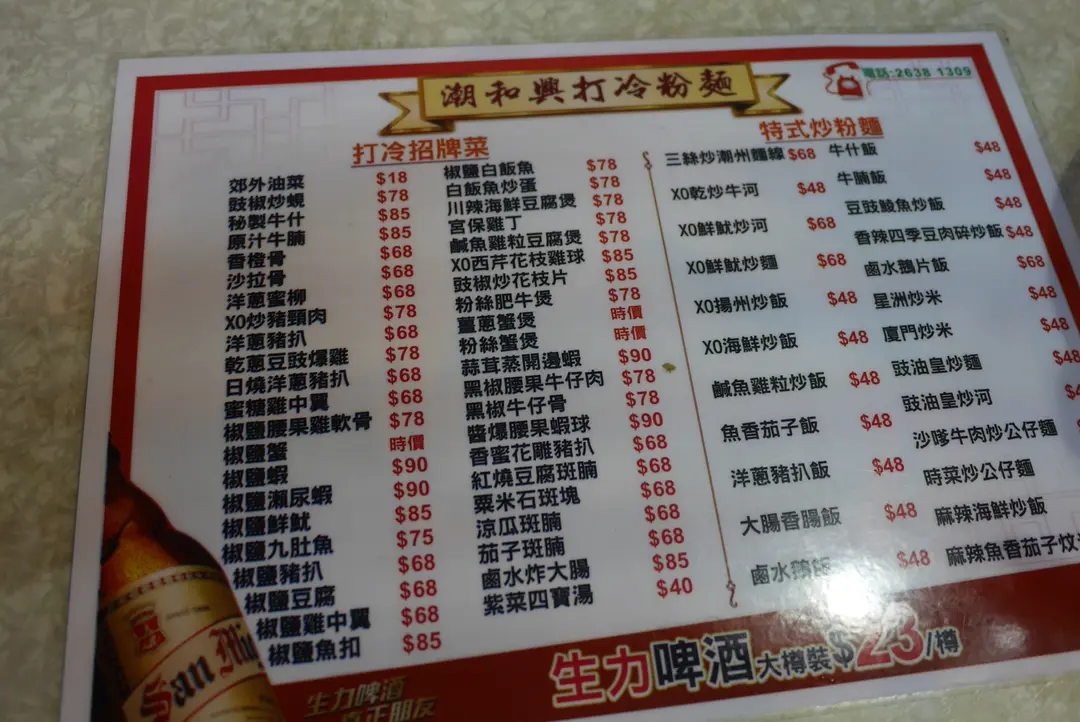 潮和興打冷粉麵
電話:2638 1309
打冷招牌菜
郊外油菜 $18
豉椒炒蜆 $78
秘製牛什 $85
原汁牛腩 $85
香橙骨 $68
沙拉骨 $68
洋蔥蜜柳 $68
XO炒豬頸肉 $78
洋蔥豬扒 $68
乾蔥豆豉爆雞 $78
日燒洋蔥豬扒 $68
蜜糖雞中翼 $68
椒鹽腰果雞軟骨 $78
椒鹽蟹 時價
椒鹽蝦 $90
椒鹽瀨尿蝦 $90
椒鹽鮮魷 $85
椒鹽九肚魚 $75
椒鹽豬扒 $68
椒鹽豆腐 $68
椒鹽雞中翼 $68
椒鹽魚扣 $85
椒鹽白飯魚 $78
白飯魚炒蛋 $78
川辣海鮮豆腐煲 $78
宮保雞丁 $78
鹹魚雞粒豆腐煲 $78
XO西芹花枝雞球 $85
豉椒炒花枝片 $85
粉絲肥牛煲 $78
薑蔥蟹煲 時價
粉絲蟹煲 時價
蒜茸蒸開邊蝦 $90
黑椒腰果牛仔肉 $78
黑椒牛仔骨 $78
醬爆腰果蝦球 $90
香蜜花雕豬扒 $68
紅燒豆腐斑腩 $68
粟米石斑塊 $68
涼瓜斑腩 $68
茄子斑腩 $68
鹵水炸大腸 $85
紫菜四寶湯 $40
特式炒粉麵
三絲炒潮州麵線 $68
XO乾炒牛河 $48
XO鮮魷炒河 $68
XO鮮魷炒麵 $68
XO揚州炒飯 $48
XO海鮮炒飯 $48
鹹魚雞粒炒飯 $48
魚香茄子飯 $48
洋蔥豬扒飯 $48
大腸香腸飯 $48
鹵水 飯 $48
牛什飯 $48
牛腩飯 $48
豆豉鯪魚炒飯 $48
香辣四季豆肉碎炒飯 $48
鹵水鵝片飯 $68
星洲炒米 $48
廈門炒米 $48
豉油皇炒麵 $48
豉油皇炒河
沙嗲牛肉炒公仔麵
時菜炒公仔麵
麻辣海鮮炒飯
麻辣魚香茄子炆
生力啤酒大樽裝$23/樽
San Mig
生力啤酒
真正朋友